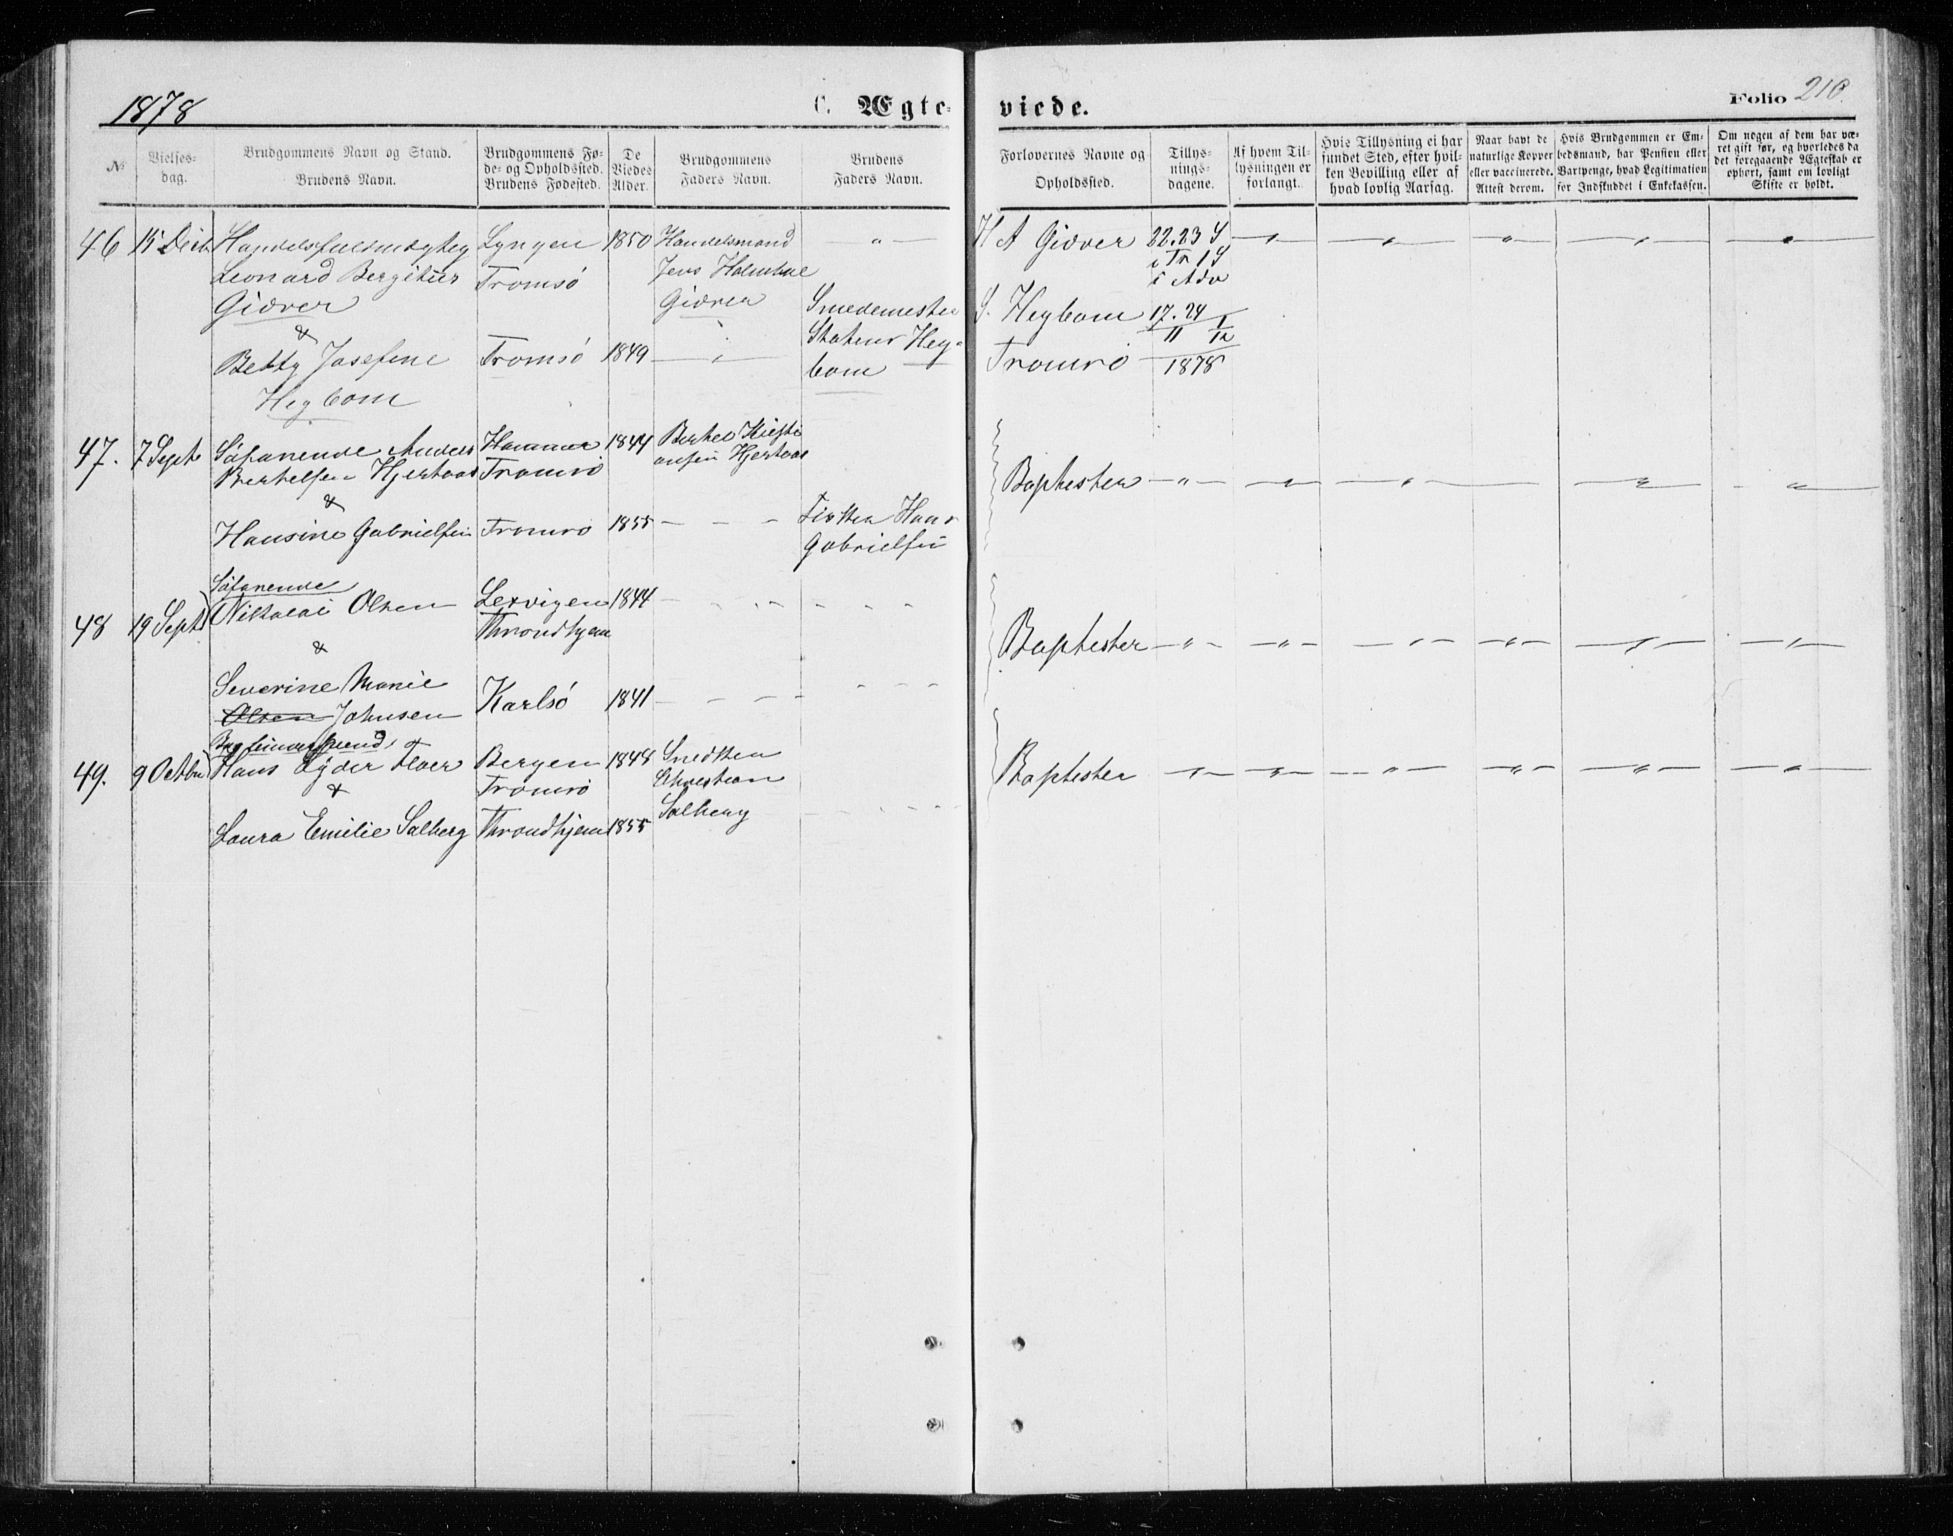 1878
C. Ægte-
viede.
Folio 210.
No
Vielses-
dag.
Brudgommens Navn og Stand.
Brudens Navn.
Brudgommens Fø-
de- og Opholdssted.
Brudens Fødested.
De
Viedes
Alder.
Brudgommens
Faders Navn.
Brudens
Faders Navn.
Forlovernes Navne og
Opholdssted.
Tillys-
nings-
dagene.
Af hvem Til-
lysningen er
forlangt.
Hvis Tillysning ei har
fundet Sted, efter hvil-
ken Bevilling eller af
hvad lovlig Aarsag.
Naar havt de
naturlige Kopper
eller vaccinerede.
Attest derom.
Hvis Brudgommen er Em-
bedsmand, har Pension eller
Vartpenge, hvad Legitimation
for Indskuddet i Enkekassen.
Om nogen af dem har væ-
ret gift før, og hvorledes da
det foregaaende Ægteskab er
ophørt, samt om lovligt
Skifte er holdt.
46
15 Decb
Handelsfuldmægtig
Leonard Bergitus
Giæver
&
Betty Josefine
Hegbom
Lyngen
Tromsö
Tromsö
1850
1849
Handelsmand
Jens Holmboe
Giæver
Smedemester
Hey-
bom
H A Giæver
S. Heybom
Tromsö
22. 23 S
i Tr 1 S
i Adv
17. 24 1
11 12
1878
47.
7 Septb
Söfarende Anders
Bertelsen Hjertaas
&
Hansine Gabrielsen
Hammer
Tromsö
Tromsö
1844
1855
Bertel Kristi
ansen Hjertaas
Fisker Hans
Gabrielsen
Baptister
48
19 Septb
Söfarende
Nikolai Olsen
&
Severine Marie
Olsen Johnsen
Lexvigen
Throndhjem
Karlsö
1844
1841
Baptister
49.
9 Octbr
Hans Lyder Floer
&
Laura Emilie Salberg
Bergen
Tromsö
Throndhjem
1848
1855
Snedker
Christian
Salberg
Baptister